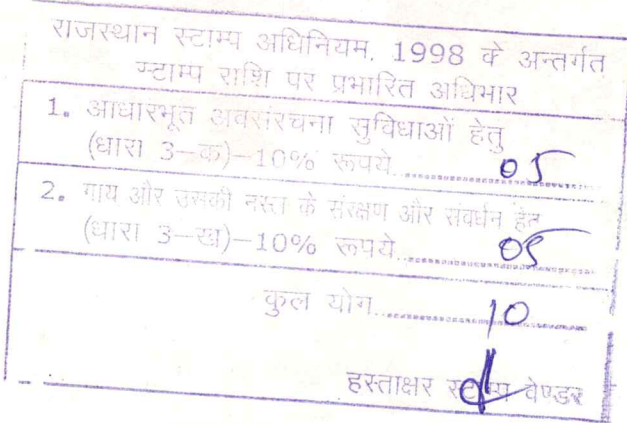 राजस्थान स्टाम्प अधिनियम, 1998 के अन्तर्गत
स्टाम्प राशि पर प्रभारित अधिभार
1. आधारभूत अवसंरचना सुविधाओं हेतु
(धारा 3-क)-10% रूपये 05
2. गाय और उसकी नस्ल के संरक्षण और संवर्धन हेतु
(धारा 3-ख)-10% रूपये 05
कुल योग 10
हस्ताक्षर स्टाम्प वेण्डर